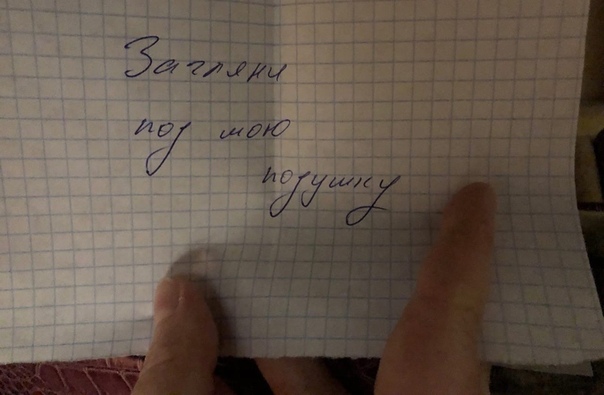 Загляни
под мою
подушку